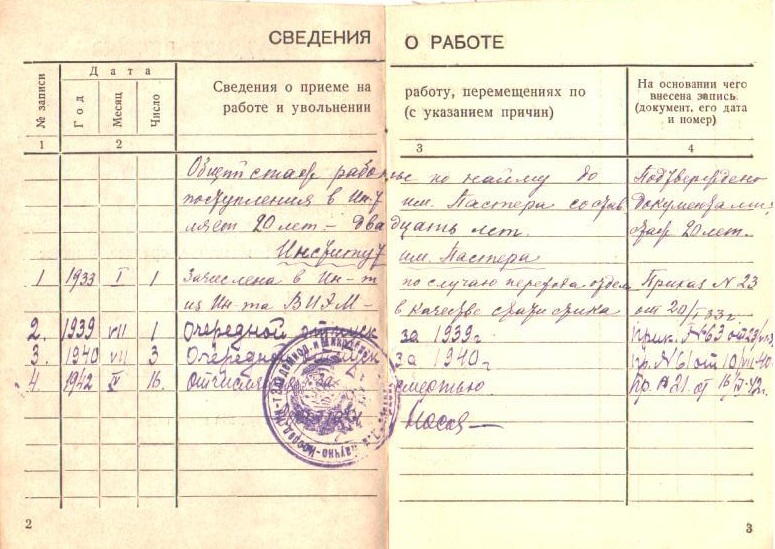 СВЕДЕНИЯ О РАБОТЕ
№ записи
Дата
Год
Месяц
Число
Сведения о приеме на работу, перемещениях по
работе и увольнении (с указанием причин)
На основании чего
внесена запись
(документ, его дата
и номер)
1 2 3 4
Общий стаж работы по найму до Подтверждено
поступления в Ин-т им. Пастера состав- документами,
ляет 20 лет – двадцать лет. стаж 20 лет.
Институт им. Пастера
1 1933 I 1 Зачислена в Ин-т по случаю перевода отдел. Приказ N 23
из Ин-та ВИЭМ – в качестве от 20/I 33 г.
2. 1939 VII 1 Очередной отпуск за 1939 г. Прик. N 63 от
3. 1940 VII 3 Очередной отпуск за 1940 г. Пр. N 61 от
4 1942 IV 16. Отчислена за смертью Пр. N 21 от 16/IV-42 г.
2
3